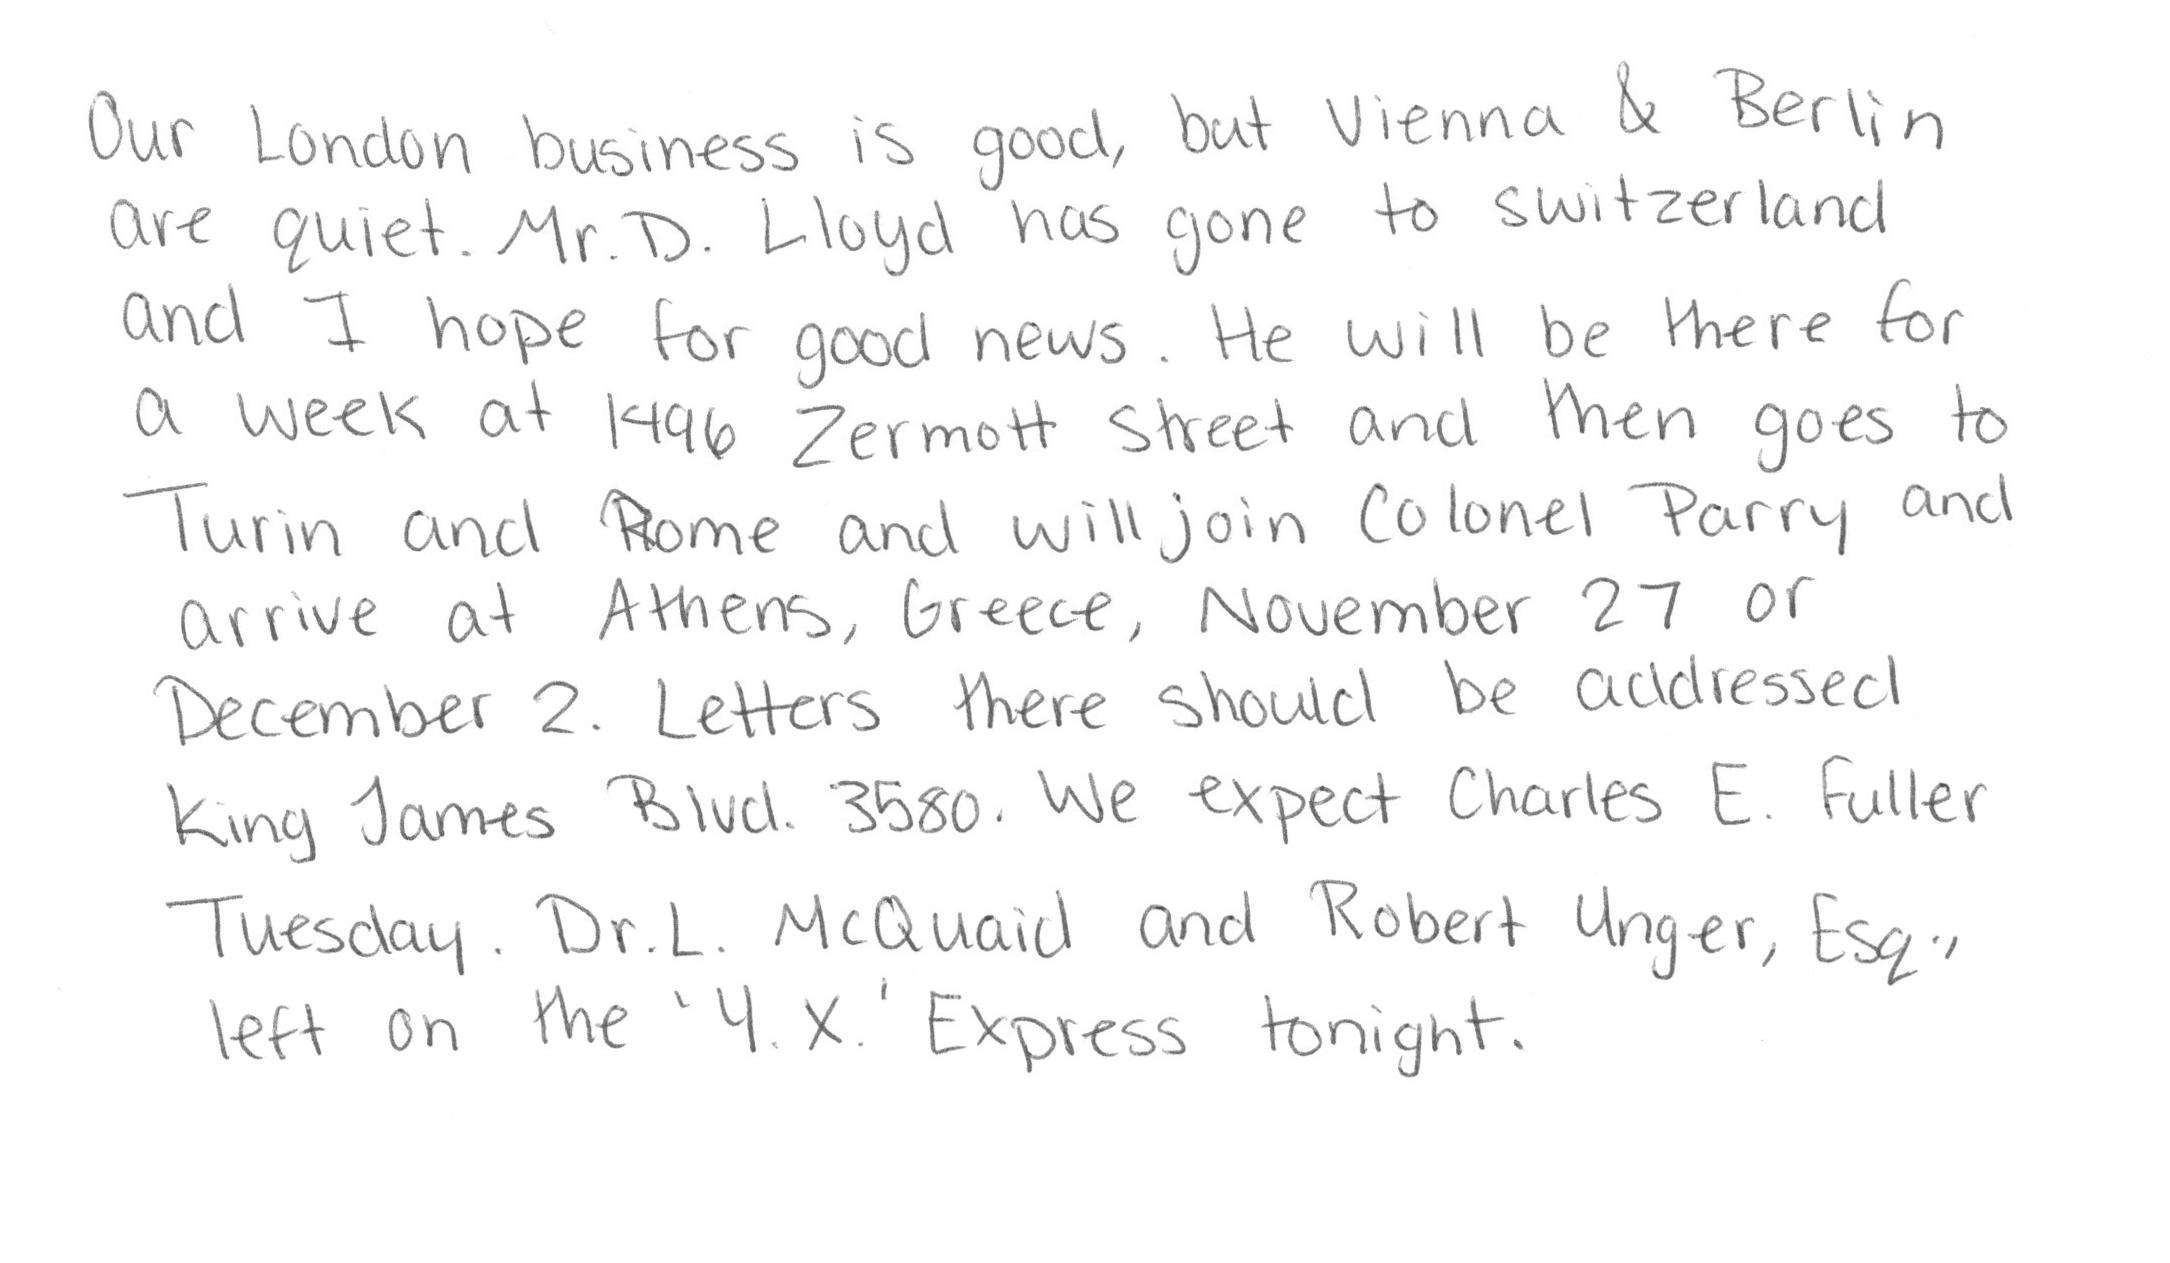 Our London business is good, but Vienna & Berlin
are quiet. Mr. D. Lloyd has gone to switzerland
and I hope for good news. He will be there for
a week at 1496 Zermott street and then goes to
Turin and Rome and will join Colonel Parry and
arrive at Athens, Greece, November 27 or
December 2. Letters there should be addressed
King James Blvd. 3580. We expect Charles E. Fuller
Tuesday. Dr. L. McQuaid and Robert Unger, Esq.,
left on the 'Y. X.' Express tonight.